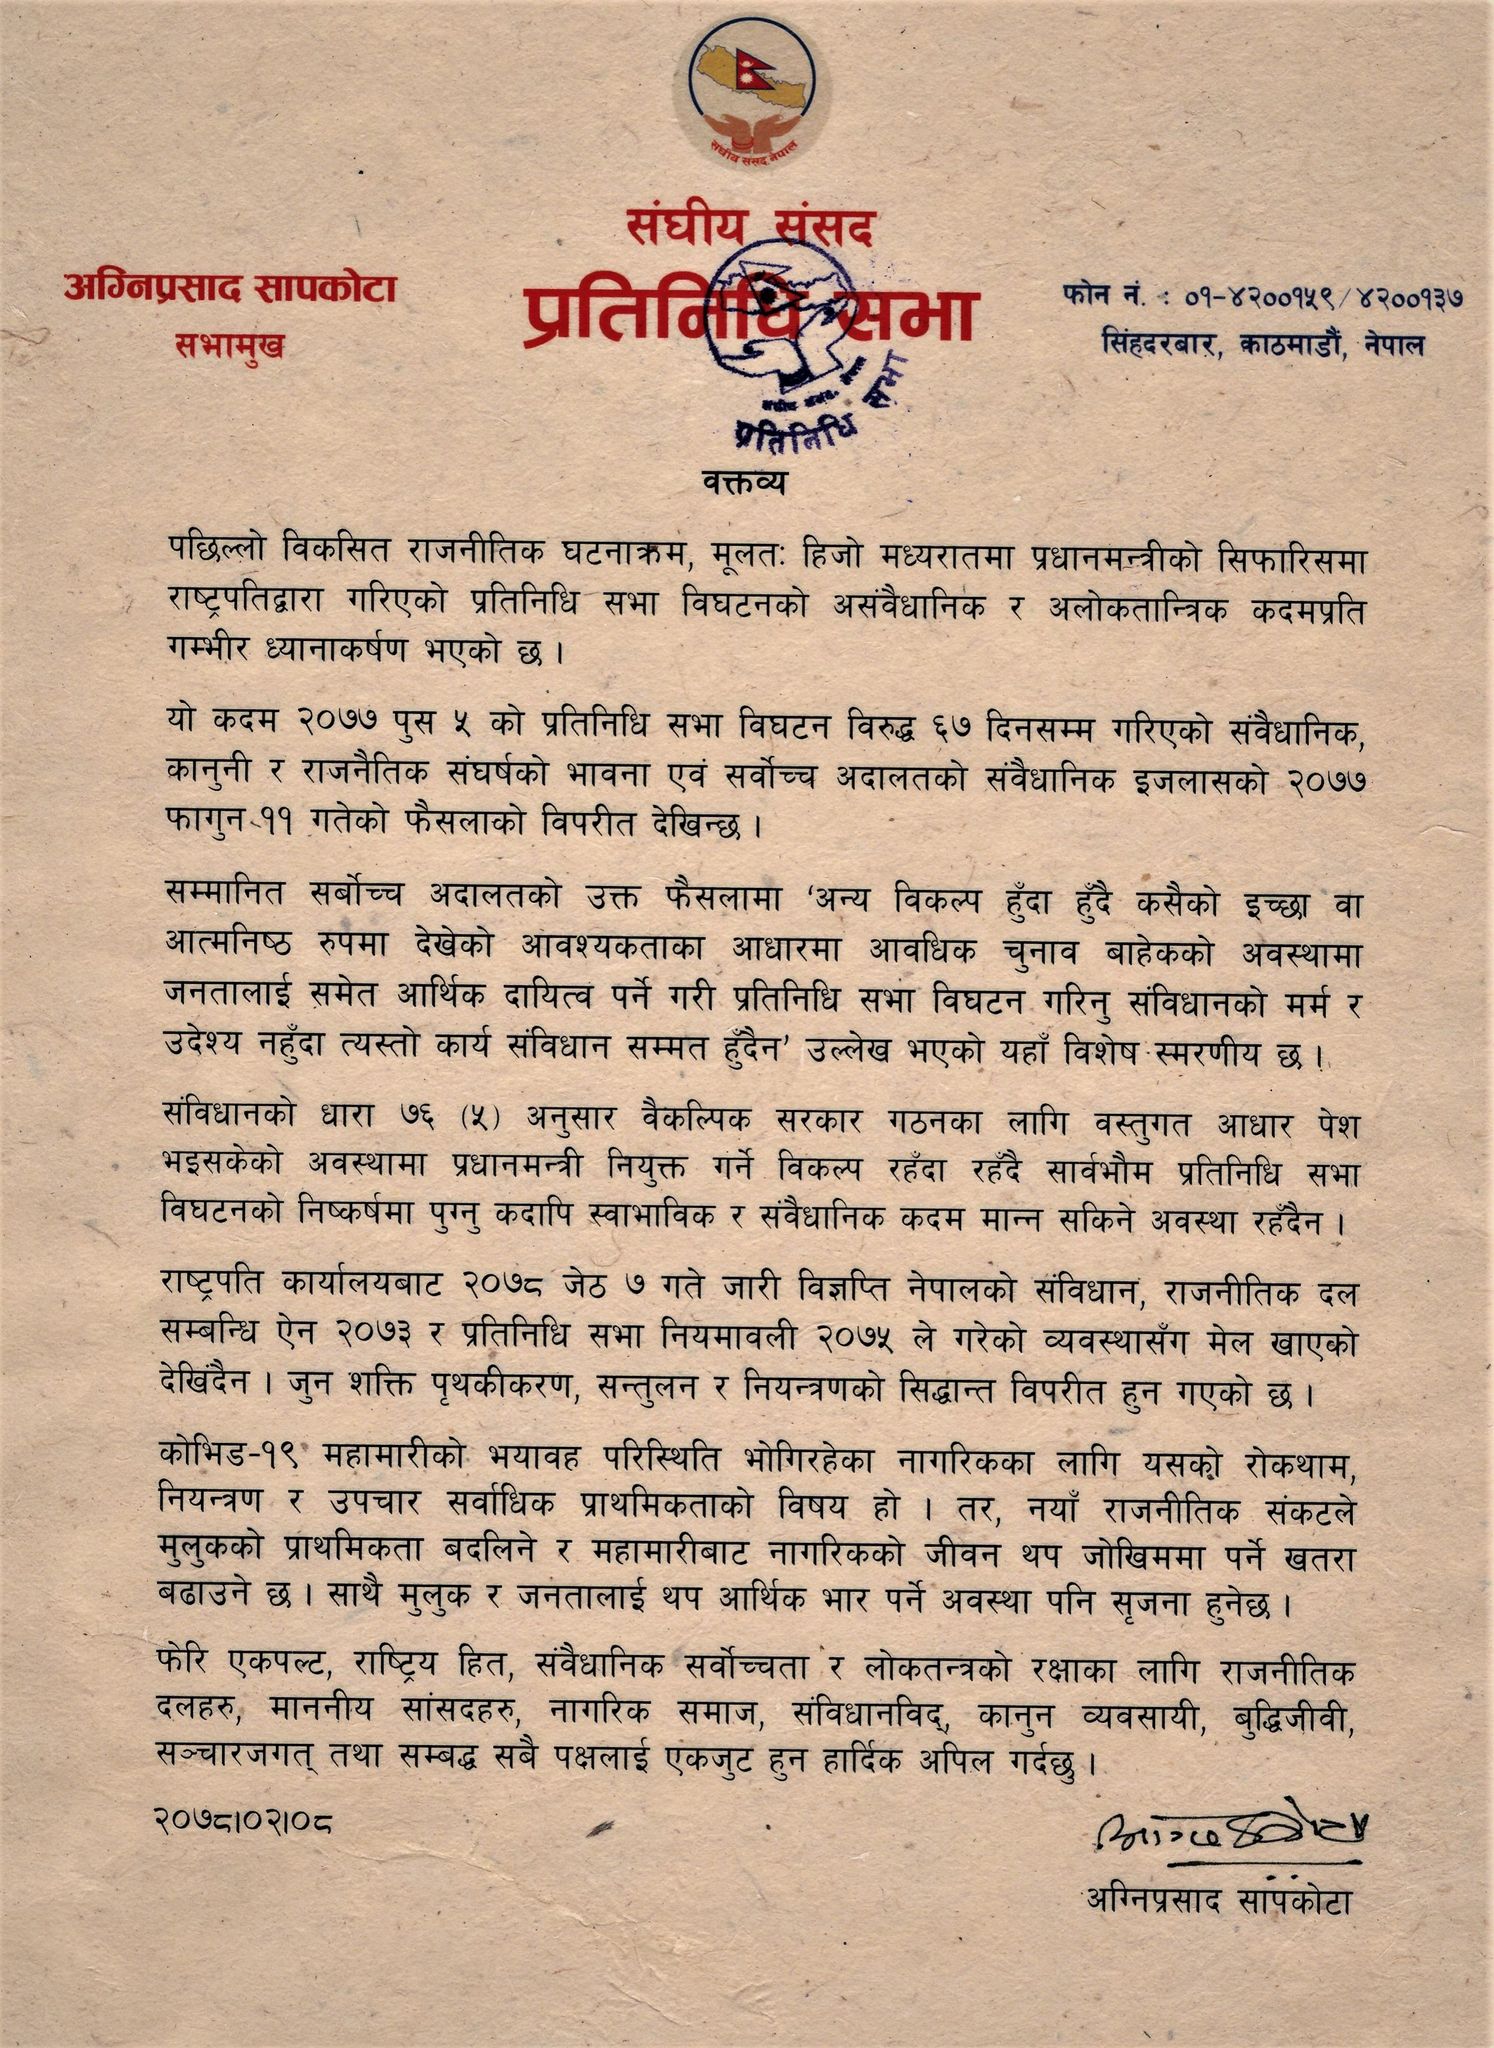 संघीय संसद नेपाल
संघीय संसद
प्रतिनिधि सभा
अग्निप्रसाद सापकोटा
सभामुख
फोन नं. : ०१-४२००१५९/४२००१३७
सिंहदरबार, काठमाडौं, नेपाल
प्रतिनिधि सभा
वक्तव्य
पछिल्लो विकसित राजनीतिक घटनाक्रम, मूलत: हिजो मध्यरातमा प्रधानमन्त्रीको सिफारिसमा
राष्ट्रपतिद्वारा गरिएको प्रतिनिधि सभा विघटनको असंवैधानिक र अलोकतान्त्रिक कदमप्रति
गम्भीर ध्यानाकर्षण भएको छ ।
यो कदम २०७७ पुस ५ को प्रतिनिधि सभा विघटन विरुद्ध ६७ दिनसम्म गरिएको संवैधानिक,
कानुनी र राजनैतिक संघर्षको भावना एवं सर्वोच्च अदालतको संवैधानिक इजलासको २०७७
फागुन ११ गतेको फैसलाको विपरीत देखिन्छ ।
सम्मानित सर्बोच्च अदालतको उक्त फैसलामा ‘अन्य विकल्प हुँदा हुँदै कसैको इच्छा वा
आत्मनिष्ठ रुपमा देखेको आवश्यकताका आधारमा आवधिक चुनाव बाहेकको अवस्थामा
जनतालाई समेत आर्थिक दायित्व पर्ने गरी प्रतिनिधि सभा विघटन गरिनु संविधानको मर्म र
उदेश्य नहुँदा त्यस्तो कार्य संविधान सम्मत हुँदैन’ उल्लेख भएको यहाँ विशेष स्मरणीय छ ।
संविधानको धारा ७६ (५) अनुसार वैकल्पिक सरकार गठनका लागि वस्तुगत आधार पेश
भइसकेको अवस्थामा प्रधानमन्त्री नियुक्त गर्ने विकल्प रहँदा रहँदै सार्वभौम प्रतिनिधि सभा
विघटनको निष्कर्षमा पुग्नु कदापि स्वाभाविक र संवैधानिक कदम मान्न सकिने अवस्था रहँदैन ।
राष्ट्रपति कार्यालयबाट २०७८ जेठ ७ गते जारी विज्ञप्ति नेपालको संविधान, राजनीतिक दल
सम्बन्धि ऐन २०७३ र प्रतिनिधि सभा नियमावली २०७५ ले गरेको व्यवस्थासँग मेल खाएको
देखिंदैन । जुन शक्ति पृथकीकरण, सन्तुलन र नियन्त्रणको सिद्धान्त विपरीत हुन गएको छ ।
कोभिड-१९ महामारीको भयावह परिस्थिति भोगिरहेका नागरिकका लागि यसको रोकथाम,
नियन्त्रण र उपचार सर्वाधिक प्राथमिकताको विषय हो । तर, नयाँ राजनीतिक संकटले
मुलुकको प्राथमिकता बदलिने र महामारीबाट नागरिकको जीवन थप जोखिममा पर्ने खतरा
बढाउने छ । साथै मुलुक र जनतालाई थप आर्थिक भार पर्ने अवस्था पनि सृजना हुनेछ ।
फेरि एकपल्ट, राष्ट्रिय हित, संवैधानिक सर्वोच्चता र लोकतन्त्रको रक्षाका लागि राजनीतिक
दलहरु, माननीय सांसदहरु, नागरिक समाज, संविधानविद्, कानुन व्यवसायी, बुद्धिजीवी,
सञ्चारजगत् तथा सम्बद्ध सबै पक्षलाई एकजुट हुन हार्दिक अपिल गर्दछु ।
२०७८।०२।०८
अग्निप्रसाद सापकोटा